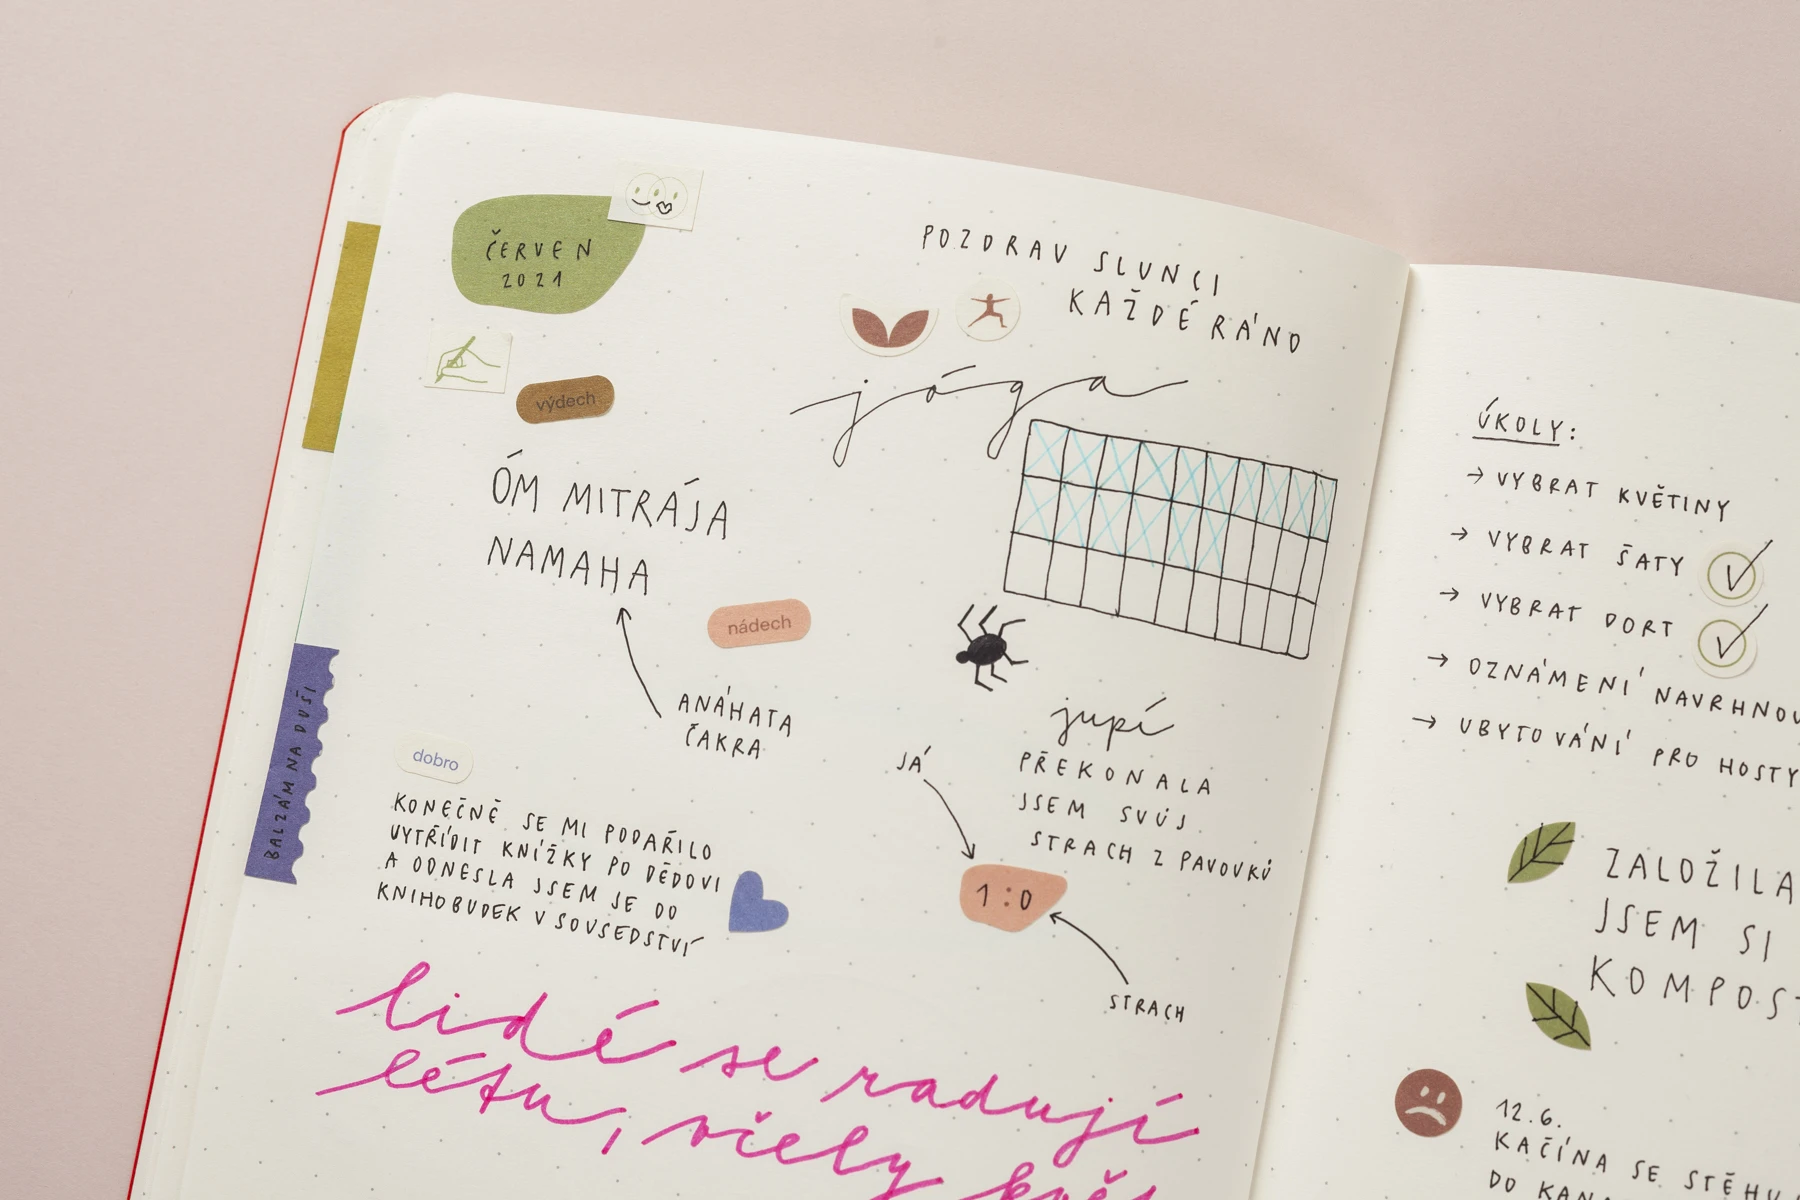 ČERVEN
2021
výdech
POZDRAV SLUNCI
KAŽDÉ RÁNO
jóga
ÓM MITRÁJA
NAMAHA
nádech
ANÁHATA
ČAKRA
BALZÁM NA DUŠI
dobro
KONEČNĚ SE MI PODAŘILO
VYTŘÍDIT KNÍŽKY PO DĚDOVI
A ODNESLA JSEM JE DO
KNIHOBUDEK V SOUSEDSTVÍ
jupí
PŘEKONALA
JSEM SVŮJ
STRACH Z PAVOUKŮ
JÁ
1:0
STRACH
lidé se radují
létu, včely
ÚKOLY:
→ VYBRAT KVĚTINY
→ VYBRAT ŠATY
→ VYBRAT DORT
→ OZNÁMENÍ NAVRHNOU
→ UBYTOVÁNÍ PRO HOSTY
ZALOŽILA
JSEM SI
KOMPOST
12.6.
KAČÍNA SE STĚHU
DO KAN